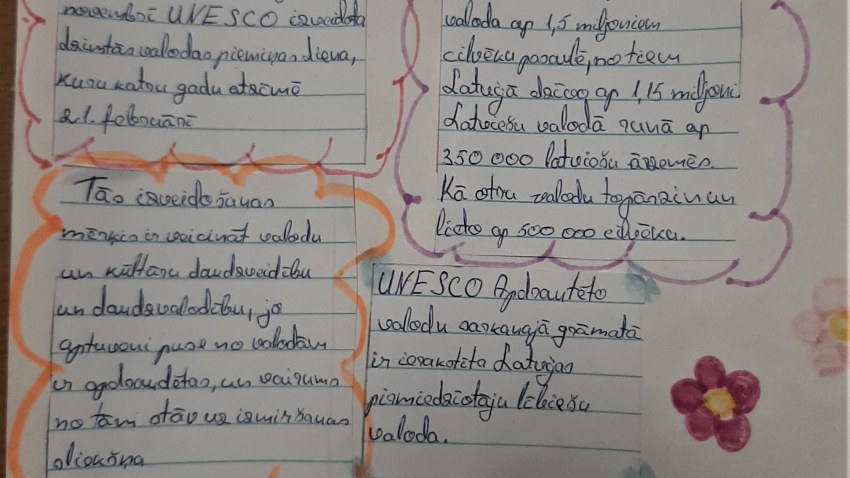 novembrī UNESCO izveidota
dzimtās valodas piemiņas diena,
kuru katru gadu atzīmē
21. februārī
Tās izveidošanas
mērķis ir veicināt valodu
un kultūru daudzveidību
un daudzvalodību, jo
aptuveni puse no valodām
ir apdraudētas, un vairums
no tām stāv uz izmiršanas
sliekšņa
valoda ap 1,5 miljoniem
cilvēku pasaulē, no tiem
Latvijā dzīvo ap 1,15 miljoni
Latviešu valodā runā ap
350 000 latviešu ārzemēs.
Kā otru valodu to pārzin un
lieto ap 500 000 cilvēku.
UNESCO Apdraudēto
valodu sarkanajā grāmatā
ir ierakstīta Latvijas
piemiedzīotāju lībiešu
valoda.